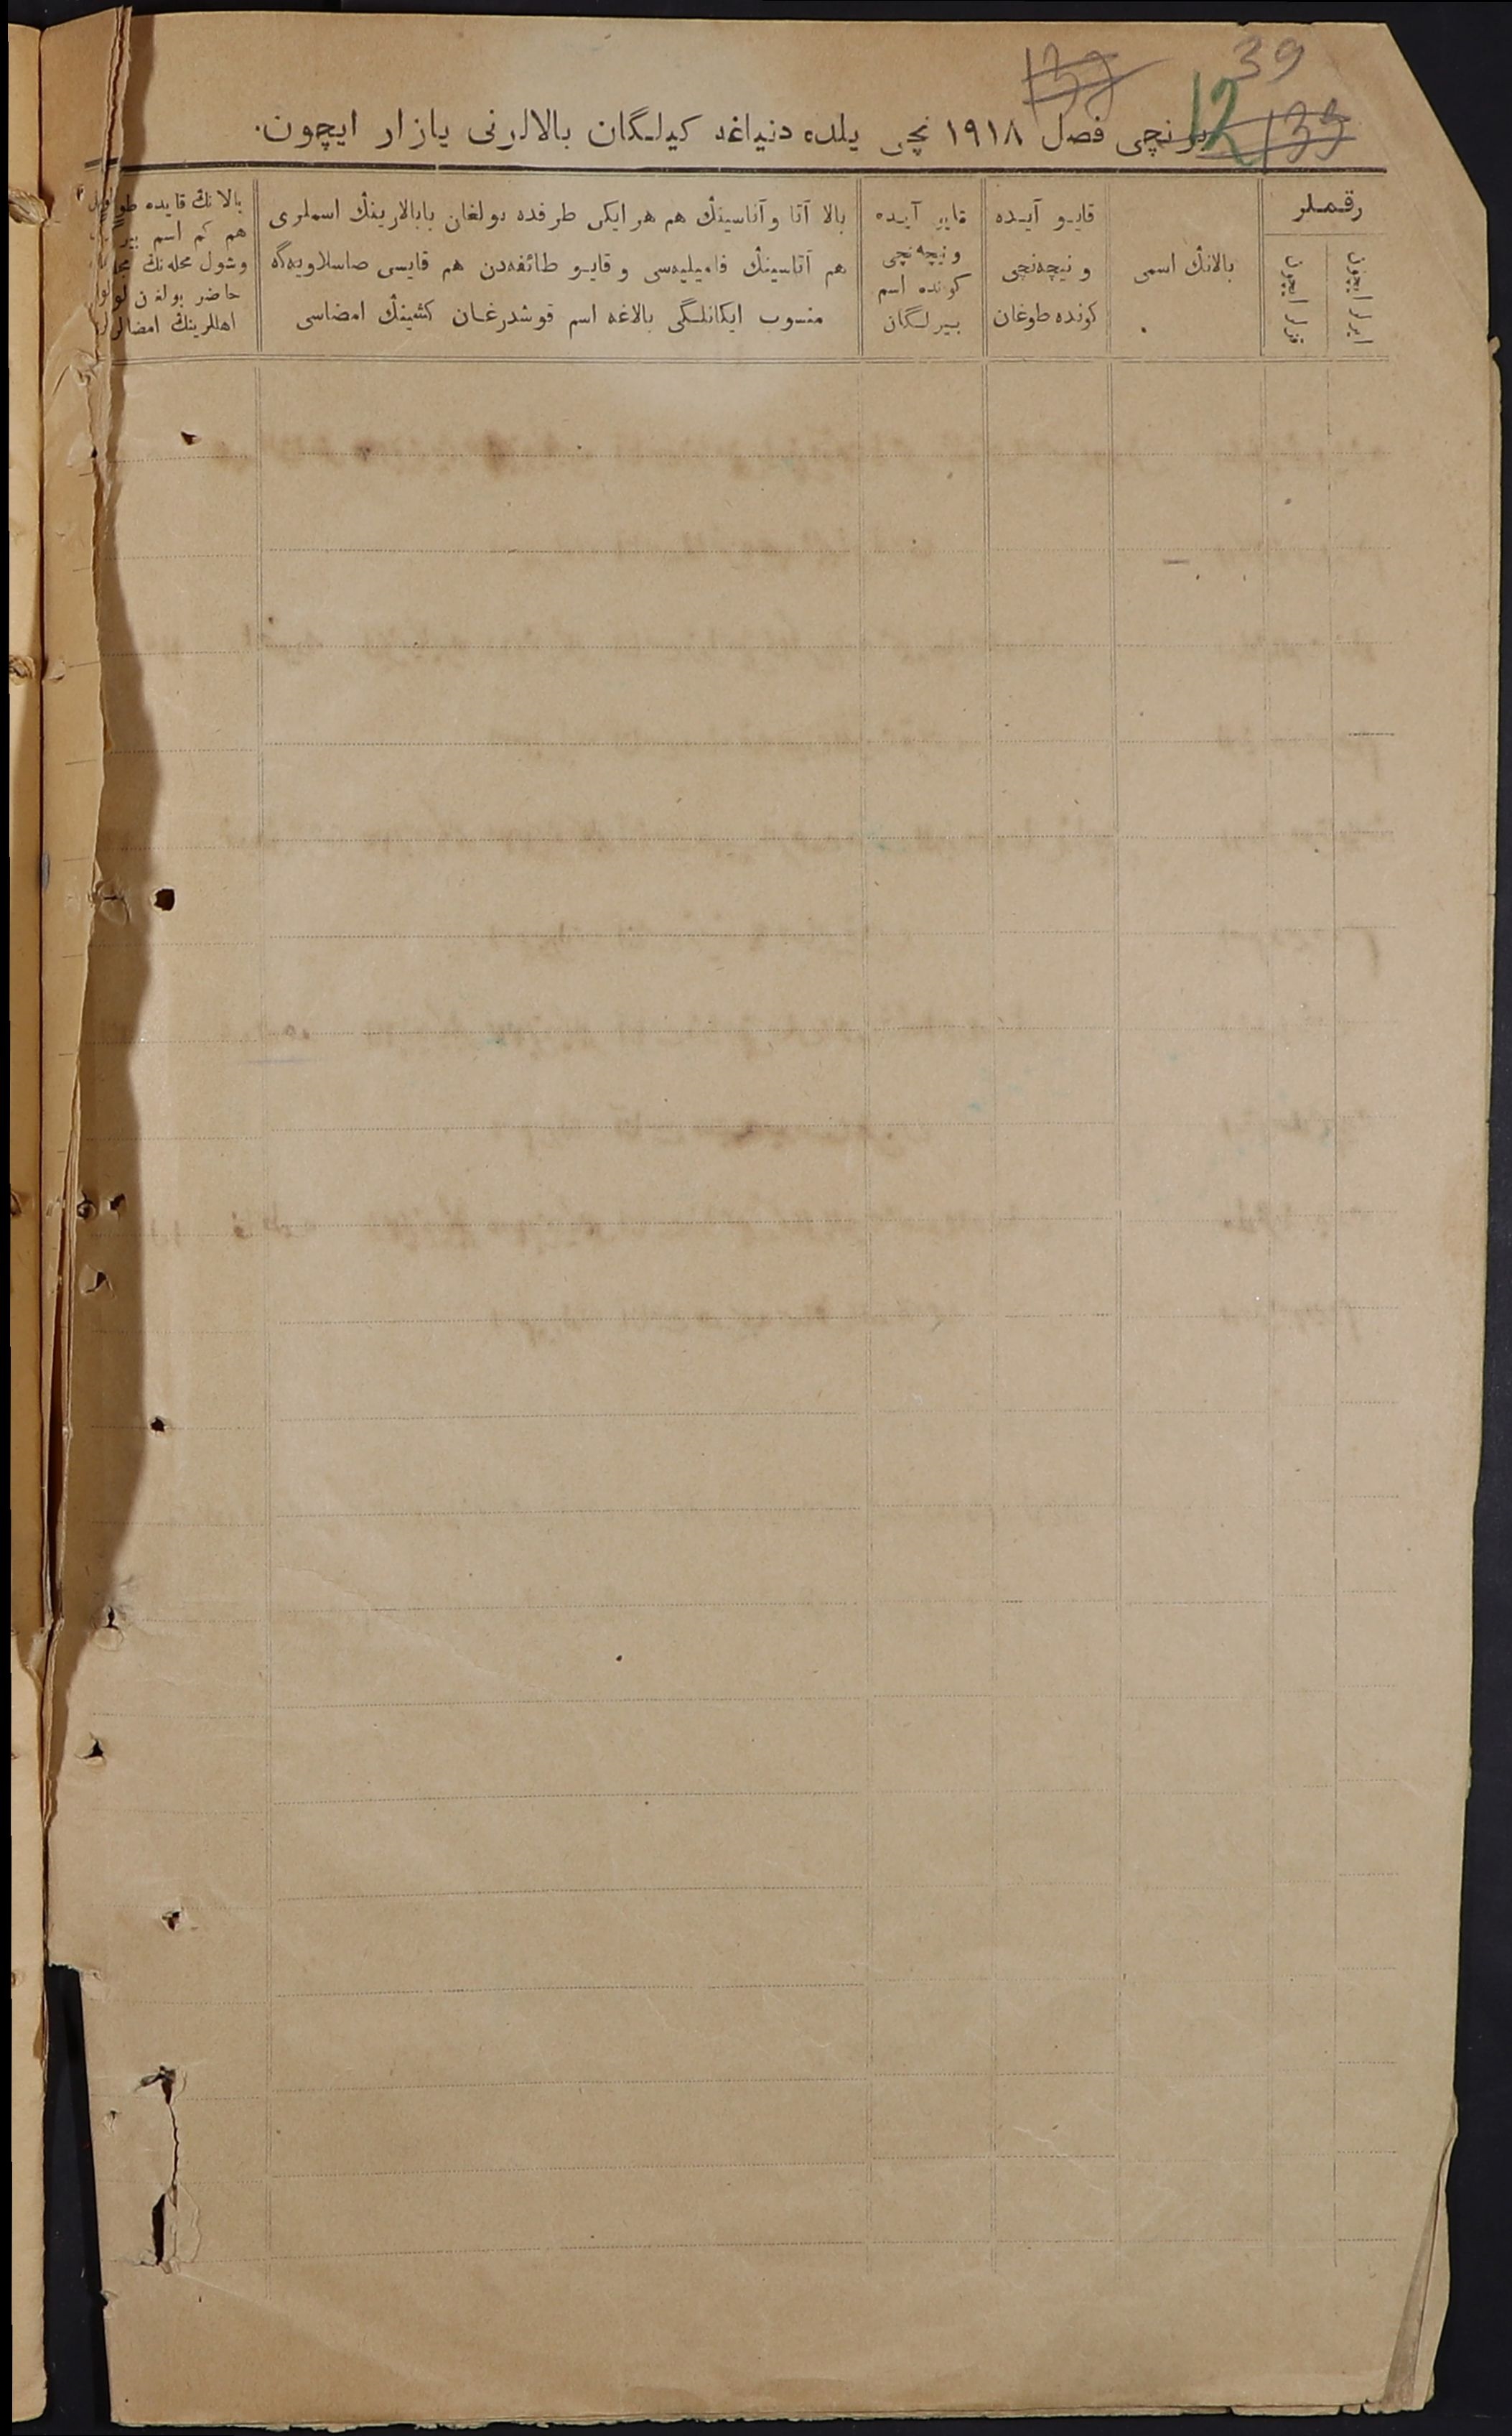 39
139
12
133
برنچی فصل ١٩١٨ نچی یلده دنیاغه کیلگان بالالرنی یازار ایچون.
رقملر
ایرلر ایچون
قزلر ایچون
بالانڭ اسمی
قایو آیده
و نیچه‌نچی
کونده طوغان
قایو آیده
و نیچه نچی
کونده اسم
بیرلگان
بالا آتا و آناسینڭ هم هر ایکی طرفده بولغان بابالارینڭ اسملری
هم آتاسینڭ فامیلیه‌سی و قایو طائفه‌دن هم قایسی صاسلاویه‌گه
منسوب ایکانلگی بالاغه اسم قوشدرغان کشینڭ امضاسی
بالانڭ قایده
هم کم اسم
و شول محله‌نڭ
حاضر بولغن
اهللرینڭ امضا